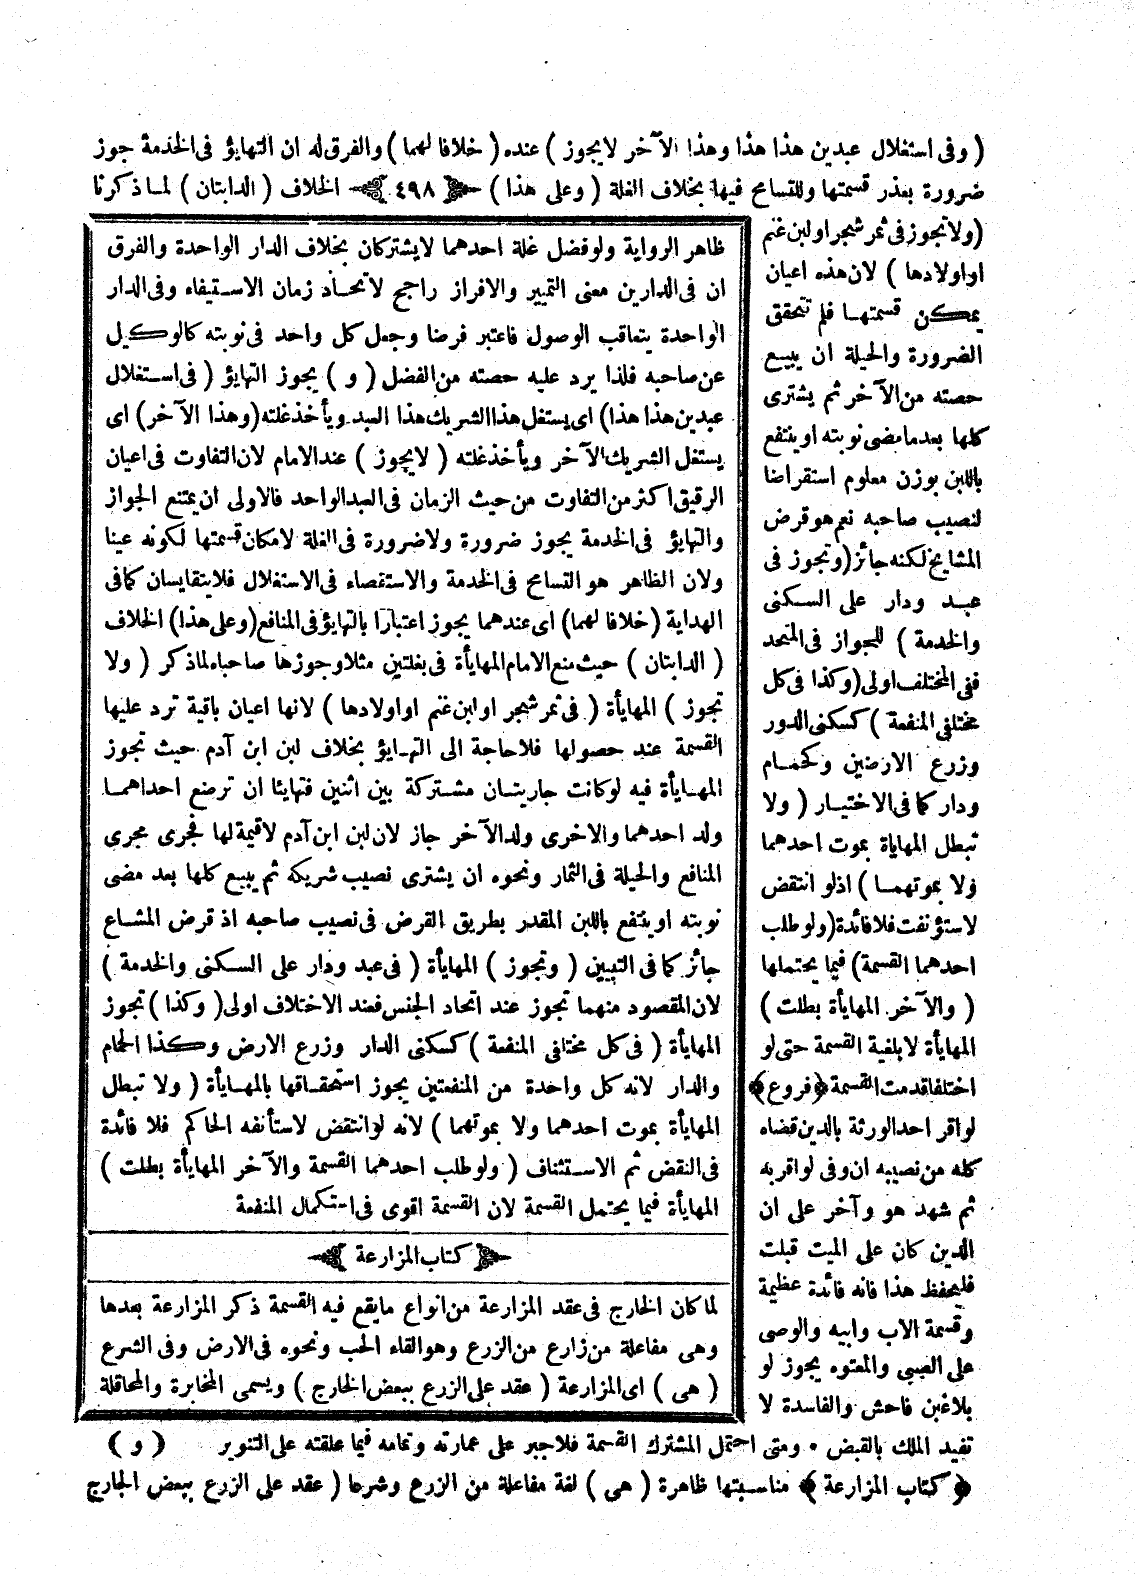 ( وفى استغلال عبدين هذا هذا وهذا الآخر لا يجوز ) عنده ( خلافا لهما ) والفرق له ان التهايؤ فى الخدمة جوز
ضرورة بعذر قسمتها وللتسامح فيها بخلاف الغلة ( وعلى هذا ) ٤٩٨ الخلاف ( الدابتان ) لما ذكرنا
( ولا تجوز فى ثمر شجر او لبن غنم
او اولادها ) لان هذه اعيان
يمكن قسمتها فلم تتحقق
الضرورة والحيلة ان يبيع
حصته من الآخر ثم يشترى
كلها بعد ما مضى نوبته او ينتفع
باللبن بوزن معلوم استقراضا
لنصيب صاحبه نعم هو قرض
المشايخ لكنه جائز ( وتجوز فى
عبد ودار على السكنى
والخدمة ) للجواز فى المتحد
ففى المختلف اولى ( وكذا فى كل
مختلفى المنفعة ) كسكنى الدور
وزرع الارضين وكحمام
ودار كما فى الاختيار ( ولا
تبطل المهاياة بموت احدهما
ولا بموتهما ) اذ لو انتقض
لاستؤنفت فلا فائدة ( ولو طلب
احدهما القسمة ) فيما يحتملها
( والآخر المهايأة بطلت )
المهايأة لابلغية القسمة حتى لو
اختلفا قدمت القسمة ﴿ فروع ﴾
لو اقر احد الورثة بالدين قضاه
كله من نصيبه ان وفى لو اقر به
ثم شهد هو وآخر على ان
الدين كان على الميت قبلت
فليحفظ هذا فانه فائدة عظيمة
وقسمة الاب وابيه والوصى
على الصبى والمعتوه يجوز لو
بلا غبن فاحش والفاسدة لا
ظاهر الرواية ولو فضل غلة احدهما لا يشتركان بخلاف الدار الواحدة والفرق
ان فى الدارين معنى التمييز والافراز راجح لاتحاد زمان الاستيفاء وفى الدار
الواحدة يتعاقب الوصول فاعتبر قرضا وجعل كل واحد فى نوبته كالوكيل
عن صاحبه فلذا يرد عليه حصته من الفضل ( و ) يجوز التهايؤ ( فى استغلال
عبدين هذا هذا ) اى يستغل هذا الشريك هذا العبد ويأخذ غلته ( وهذا الآخر ) اى
يستغل الشريك الآخر ويأخذ غلته ( لا يجوز ) عند الامام لان التفاوت فى اعيان
الرقيق اكثر من التفاوت من حيث الزمان فى العبد الواحد فالاولى ان يمتنع الجواز
والتهايؤ فى الخدمة يجوز ضرورة ولا ضرورة فى الغلة لامكان قسمتها لكونه عينا
ولان الظاهر هو التسامح فى الخدمة والاستقصاء فى الاستغلال فلا يتقايسان كما فى
الهداية ( خلافا لهما ) اى عندهما يجوز اعتبارا بالتهايؤ فى المنافع ( وعلى هذا ) الخلاف
( الدابتان ) حيث منع الامام المهايأة فى بغلتين مثلا وجوزها صاحباه لما ذكر ( ولا
تجوز ) المهايأة ( فى ثمر شجر او لبن غنم او اولادها ) لانها اعيان باقية ترد عليها
القسمة عند حصولها فلا حاجة الى التهايؤ بخلاف لبن ابن آدم حيث تجوز
المهايأة فيه لو كانت جاريتان مشتركة بين اثنين فتهايئا ان ترضع احداهما
ولد احدهما والاخرى ولد الآخر جاز لان لبن ابن آدم لا قيمة لها فجرى مجرى
المنافع والحيلة فى الثمار ونحوه ان يشترى نصيب شريكه ثم يبيع كلها بعد مضى
نوبته او ينتفع باللبن المقدر بطريق القرض فى نصيب صاحبه اذ قرض المشاع
جائز كما فى التبيين ( وتجوز ) المهايأة ( فى عبد ودار على السكنى والخدمة )
لان المقصود منهما تجوز عند اتحاد الجنس فعند الاختلاف اولى ( وكذا ) تجوز
المهايأة ( فى كل مختلفى المنفعة ) كسكنى الدار وزرع الارض وكذا الحمام
والدار لانه كل واحدة من المنفعتين يجوز استحقاقها بالمهايأة ( ولا تبطل
المهايأة بموت احدهما ولا بموتهما ) لانه لو انتقض لاستأنفه الحاكم فلا فائدة
فى النقض ثم الاستئناف ( ولو طلب احدهما القسمة والآخر المهايأة بطلت )
المهايأة فيما يحتمل القسمة لان القسمة اقوى فى استكمال المنفعة
كتاب المزارعة
لما كان الخارج فى عقد المزارعة من انواع ما يقع فيه القسمة ذكر المزارعة بعدها
وهى مفاعلة من زارع من الزرع وهو القاء الحب ونحوه فى الارض وفى الشرع
( هى ) اى المزارعة ( عقد على الزرع ببعض الخارج ) ويسمى المخابرة والمحاقلة
تفيد الملك بالقبض • ومتى احتمل المشترك القسمة فلا جبر على عمارته وتمامه فيما علقته على التنوير ( و )
﴿ كتاب المزارعة ﴾ مناسبتها ظاهرة ( هى ) لغة مفاعلة من الزرع وشرعا ( عقد على الزرع ببعض الخارج